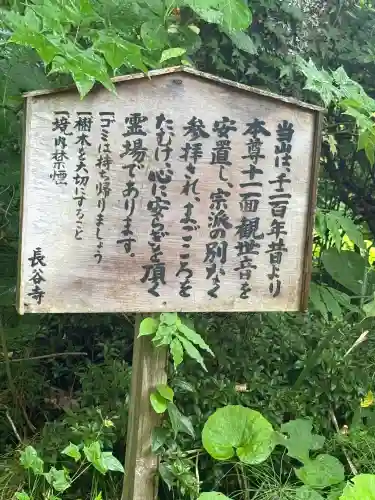 当山は一千二百年昔より
本尊十一面観世音を
安置し、宗派の別なく
参拝され、まごころを
たむけ、心に安らぎを頂く
霊場であります。
一、ゴミは持ち帰りましょう
一、樹木を大切にすること
一、境内禁煙
長谷寺